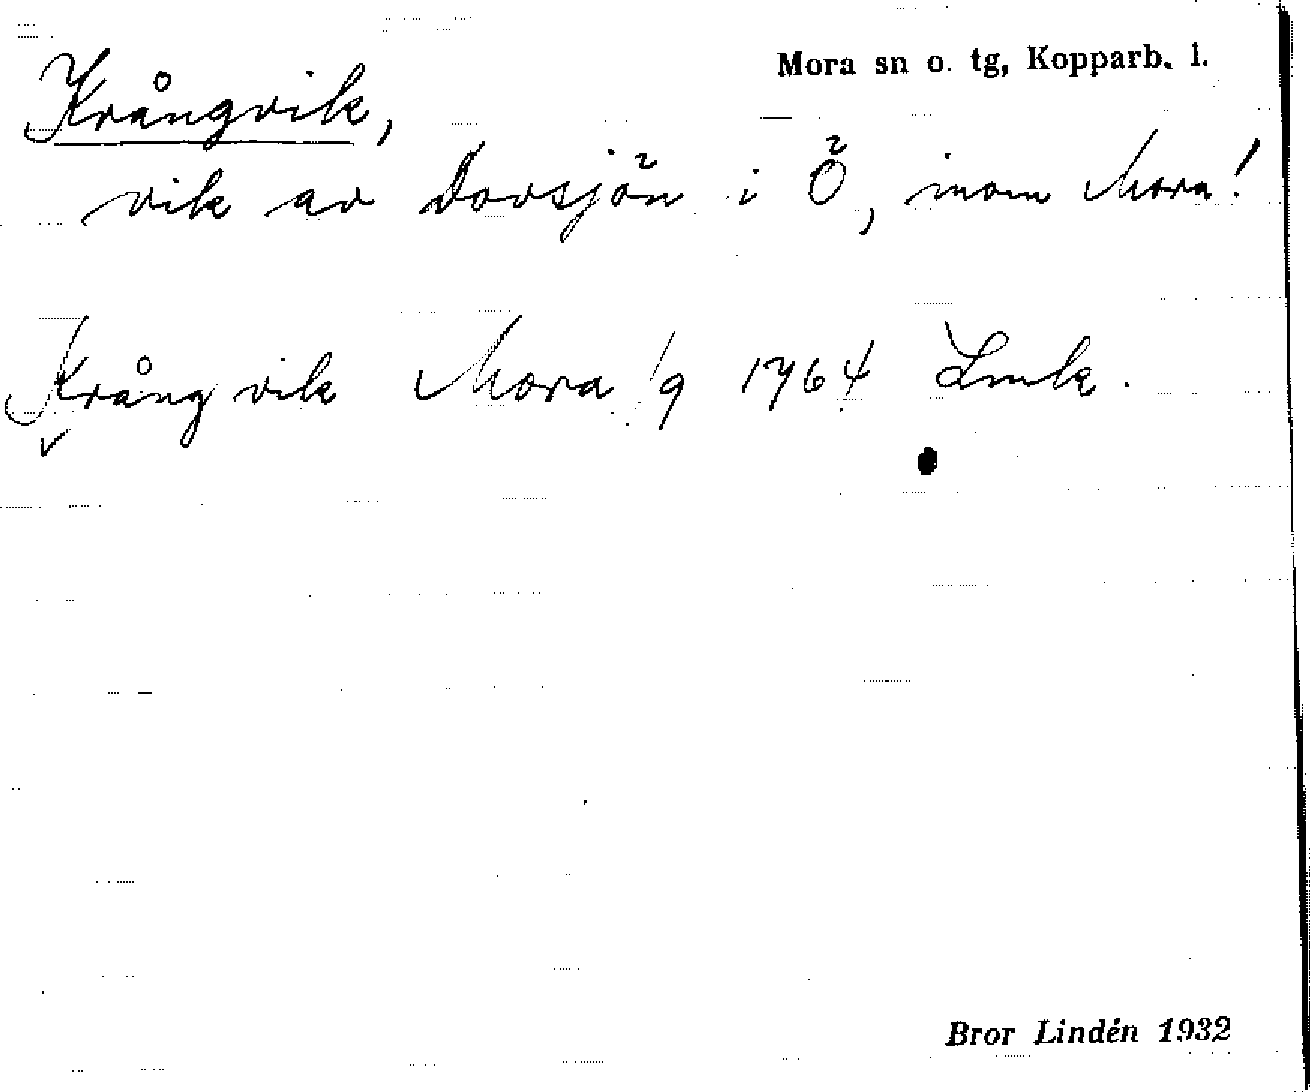 Mora sn o. tg, Kopparb. l.
Krångvik,
vik av Dovsjön i Ö, inom Mora!
Krång vik Mora 1/9 1764 Lmk.
Bror Lindén 1932